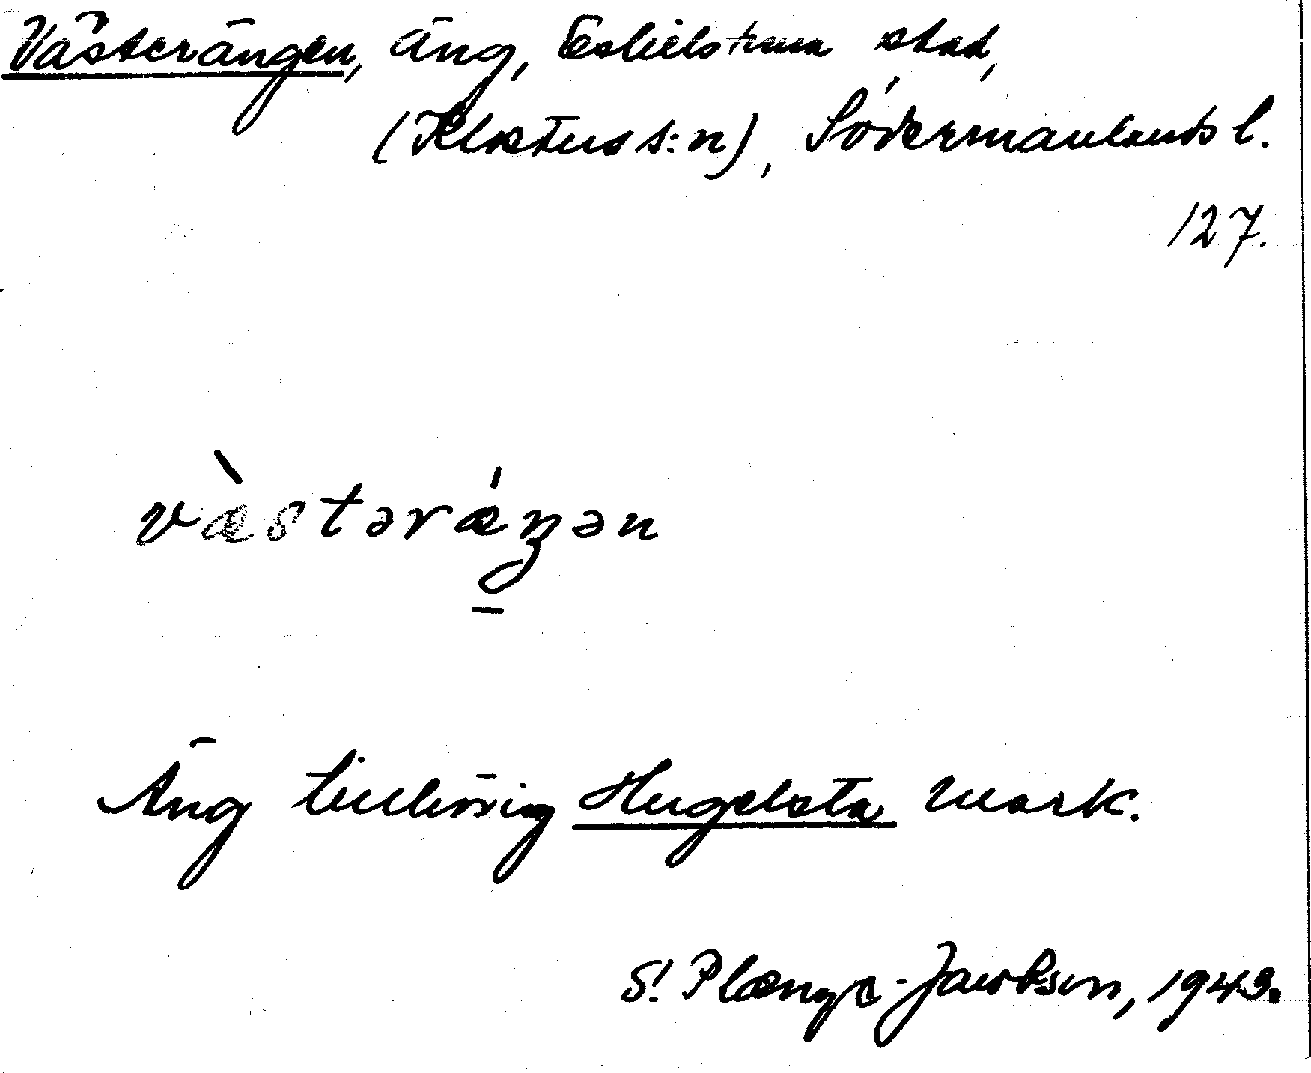 Västerängen, äng, Eskilstuna stad,
(Klosters s:n), Södermanlands l.
127.
væ̀stərǽŋən
Äng tillhörig Hugelsta mark.
S. Plænge-Jacobson, 1943.